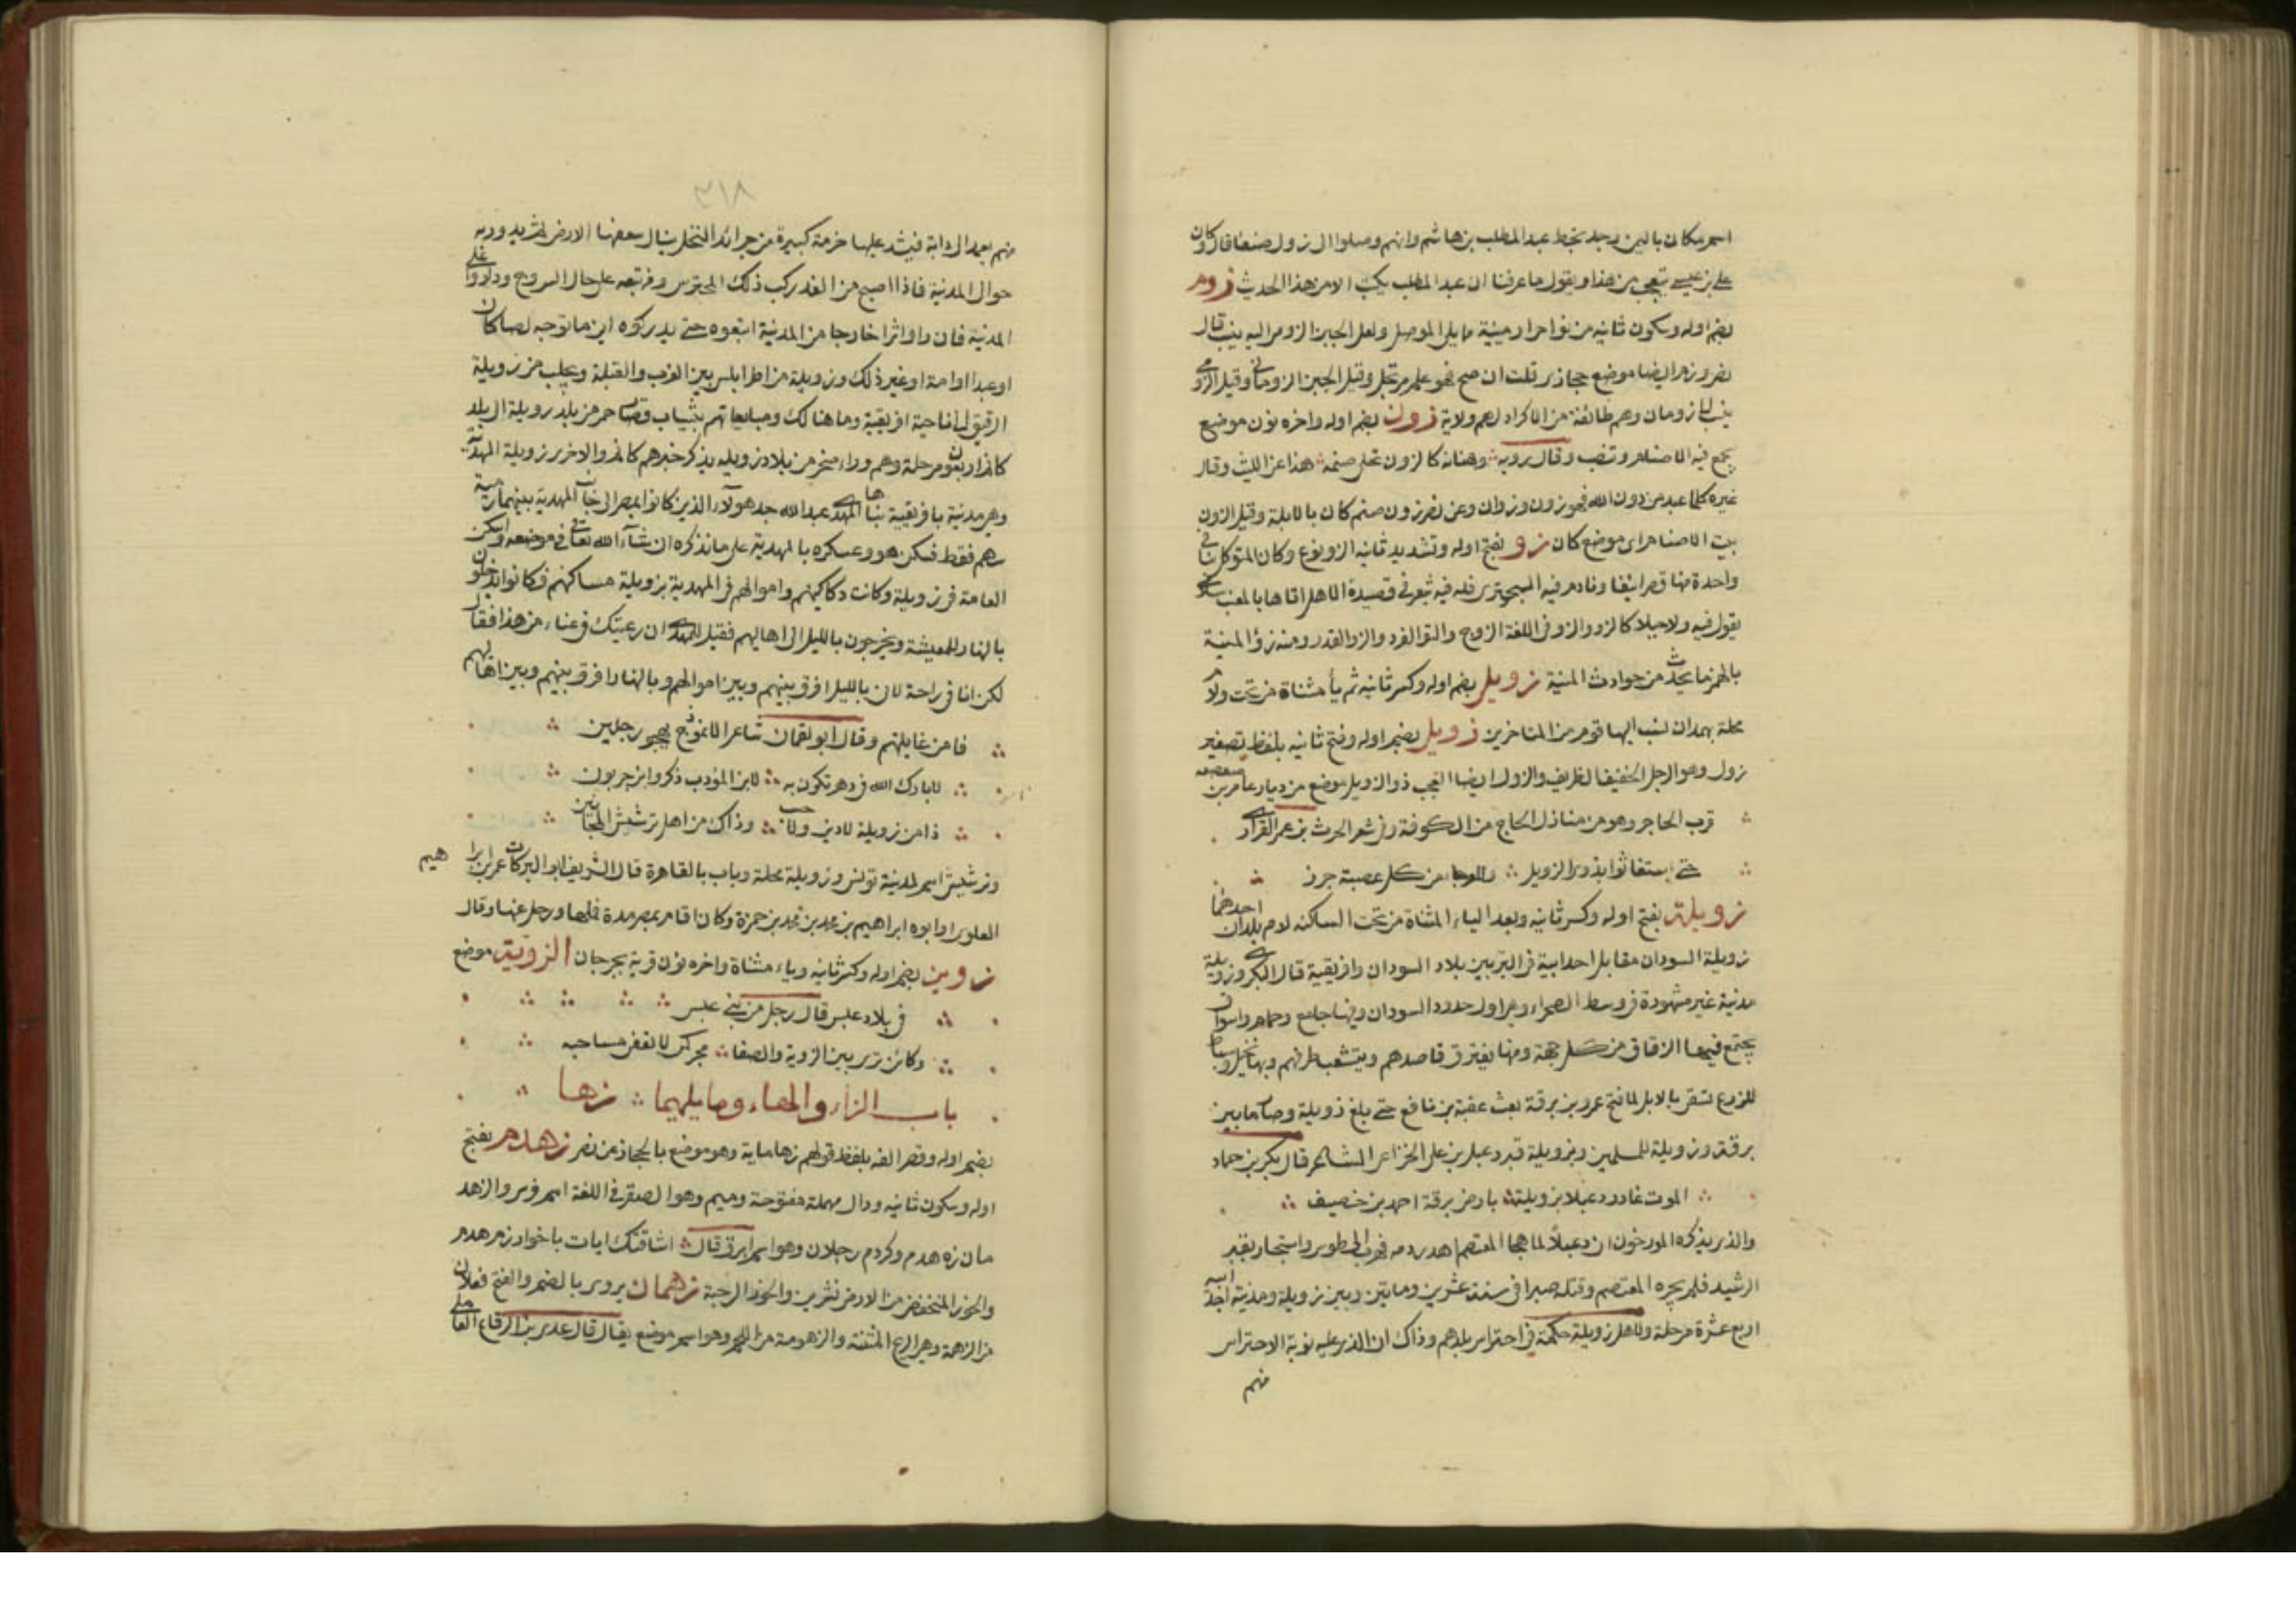 اسم مكان باليمن وجد بخط عبد المطلب بن هاشم وانهم وصلوا الى زول صنعا قال وكان
علي بن عيسى يتعجب من هذا ويقول ما عرفنا ان عبد المطلب يكتب الا من هذا الحديث زوم
بضم اوله وسكون ثانيه من نواحي ارمينية مما يلي الموصل ولعل الجبن الزومي اليه ينسب قال
نصر وزم ايضا موضع حجازي قلت ان صح فهو علم مرتجل وقيل الجبن الزوماني وقيل الزومي
ينسب الى زومان وهم طائفة من الاكراد لهم ولاية زون بضم اوله واخره نون موضع
يجمع فيه الاصنام وتنصب وقال روبه وهنانه كالزون تجلى صنمه هذا عن الليث وقال
غيره كلما عبد من دون الله فهو زون وزوان وعن نصر زون صنم كان بالابلة وقيل الزون
بيت الاصنام اي موضع كان زو بفتح اوله وتشديد ثانيه الزو نوع وكان المتوكل بنا في
واحدة منها قصرا منيفا ونادم فيه البحتري فله فيه شعر في قصيدة
يقول فيه ولا جبلا كالزو والزو في اللغة الزوج والتو الفرد والزو القدر ومنه زؤ المنية
بالهمز ما يحدث من حوادث المنية زويل بضم اوله وكسر ثانيه ثم يأ مثناة من تحت ولام
محلة بهمدان نسب اليها قوم من المتاخرين زويل بضم اوله وفتح ثانيه بلفظ تصغير
زول وهو الرجل الخفيف الظريف والزول ايضا العجب ذو الزويل موضع من ديار عامر بن صعصعه
قرب الحاجر وهو من منازل الحاج من الكوفة وفي شعر الحرث بن عمر الفزاري
حتى استغاثوا بذوى الزويل من كل عصبة جرز
زويلة بفتح اوله وكسر ثانيه وبعد الياء المثناة من تحت الساكنه لام بلدان احدهما
زويلة السودان مقابل اجدابية في البر بين بلاد السودان وافريقية قال البكري وزويلة
مدينة غير مشهورة في وسط الصحراء وهي اول حدود السودان وفيها جامع وحمام واسواق
يجتمع فيها الرفاق من كل جهة ومنها يفترق قاصدهم وينشعب طرقهم وبها نخيل وبساط
للزرع تسقى بالابل لما فتح عمرو بن برقة بعث عقبة بن نافع حتى بلغ زويلة وصار ما بين
برقة وزويلة للمسلمين وبزويلة قبر دعبل بن علي الخزاعي الشاعر قال بكر بن حماد
الموت غادر دعبلا بزويلة بارض برقة احمد بن خصيف
والذي يذكره المورخون ان دعبلا لما هجا المعتصم اهدر دمه فهرب الى طوس واستجار بقبر
الرشيد فلم يجره المعتصم وقتله صبرا في سنة عشرين ومايتين وبين زويلة ومدينة اجدابيه
اربع عشرة مرحلة ولاهل زويلة حكمة في احتراس بلدهم وذاك ان الذي عليه نوبة الاحتراس
منهم
٣١٨
منهم يعمد الى دابة فيشد عليها حزمة كبيرة من جرائد النخل ينال سعفها الارض ثم يدور به
حوالى المدينة فاذا اصبح من الغد ركب ذلك المحترس ومن تبعه على جمال السروج وداروا على
المدينة فان راوا اثرا خارجا من المدينة اتبعوه حتى يدركوه اين ما توجه لصا كان
او عبدا او امة او غير ذلك وزويلة من اطرابلس بين الغرب والقبلة ويجلب من زويلة
الرقيق الى ناحية افريقية وما هنالك ومبايعاتهم بثياب قصار حمر من بلد زويلة الى بلد
كانم اربعون مرحلة وهم وراء صحرا من بلاد زويله يذكر خبرهم كانم والاخرى زويلة المهدية
وهي مدينة بافريقية بناها المهدي عبد الله جد هؤلاء الذين كانوا بمصر الى جانب المهدية بينهما رمية
سهم فقط فسكن هو وعسكره بالمهدية على ما نذكره ان شاء الله تعالى في موضعه واسكن
العامة في زويلة وكانت دكاكينهم واموالهم في المهدية بزويلة مساكنهم فكانوا يدخلون
بالنهار للمعيشة ويخرجون بالليل الى اهاليهم فقيل للمهدي ان رعيتك في عناء من هذا فقال
لكن انا في راحة لان بالليل افرق بينهم وبين اموالهم وبالنهار افرق بينهم وبين اهاليهم
فامن غايلتهم وقال ابو لقمان شاعر الانموذج يهجو رجلين
لا بارك الله في دهر تكون به لابن المؤدب ذكر وابن حربون
ذا من زويلة لا دين ولا حسب وذاك من اهل ترشيش المجانين
وترشيش اسم لمدينة تونس وزويلة محلة وباب بالقاهرة قال الشريف ابو البركات عمر بن ابراهيم
العلوي وابوه ابراهيم بن محمد بن محمد بن حمزة وكان اقام بمصر مدة فملها ورحل عنها وقال
زوين بضم اوله وكسر ثانيه وياء مثناة واخره نون قرية بجرجان الزوية موضع
في بلاد عبس قال رجل من بني عبس
وكائن ترى بين الزوية والصفا مجر كمي لا تعفى مساحبه
باب الزاء والهاء وما يليهما زها
بضم اوله وقصر الفه بلفظ قولهم زها ماية وهو موضع بالحجاز عن نصر زهدم بفتح
اوله وسكون ثانيه ودال مهملة مفتوحة وميم وهو الصقر في اللغة اسم فرس والزهد
مان زهدم وكردم رجلان وهو اسم ابرق قال اشاقتك ايات باخوار زهدم
والخور المنخفض من الارض نشزين والخور الرحبة زهمان يروى بالضم والفتح فعلان
من الزهمة وهي الريح المنتنة والزهومة من اللحم وهو اسم موضع يقال قال عدي بن الرقاع العاملي